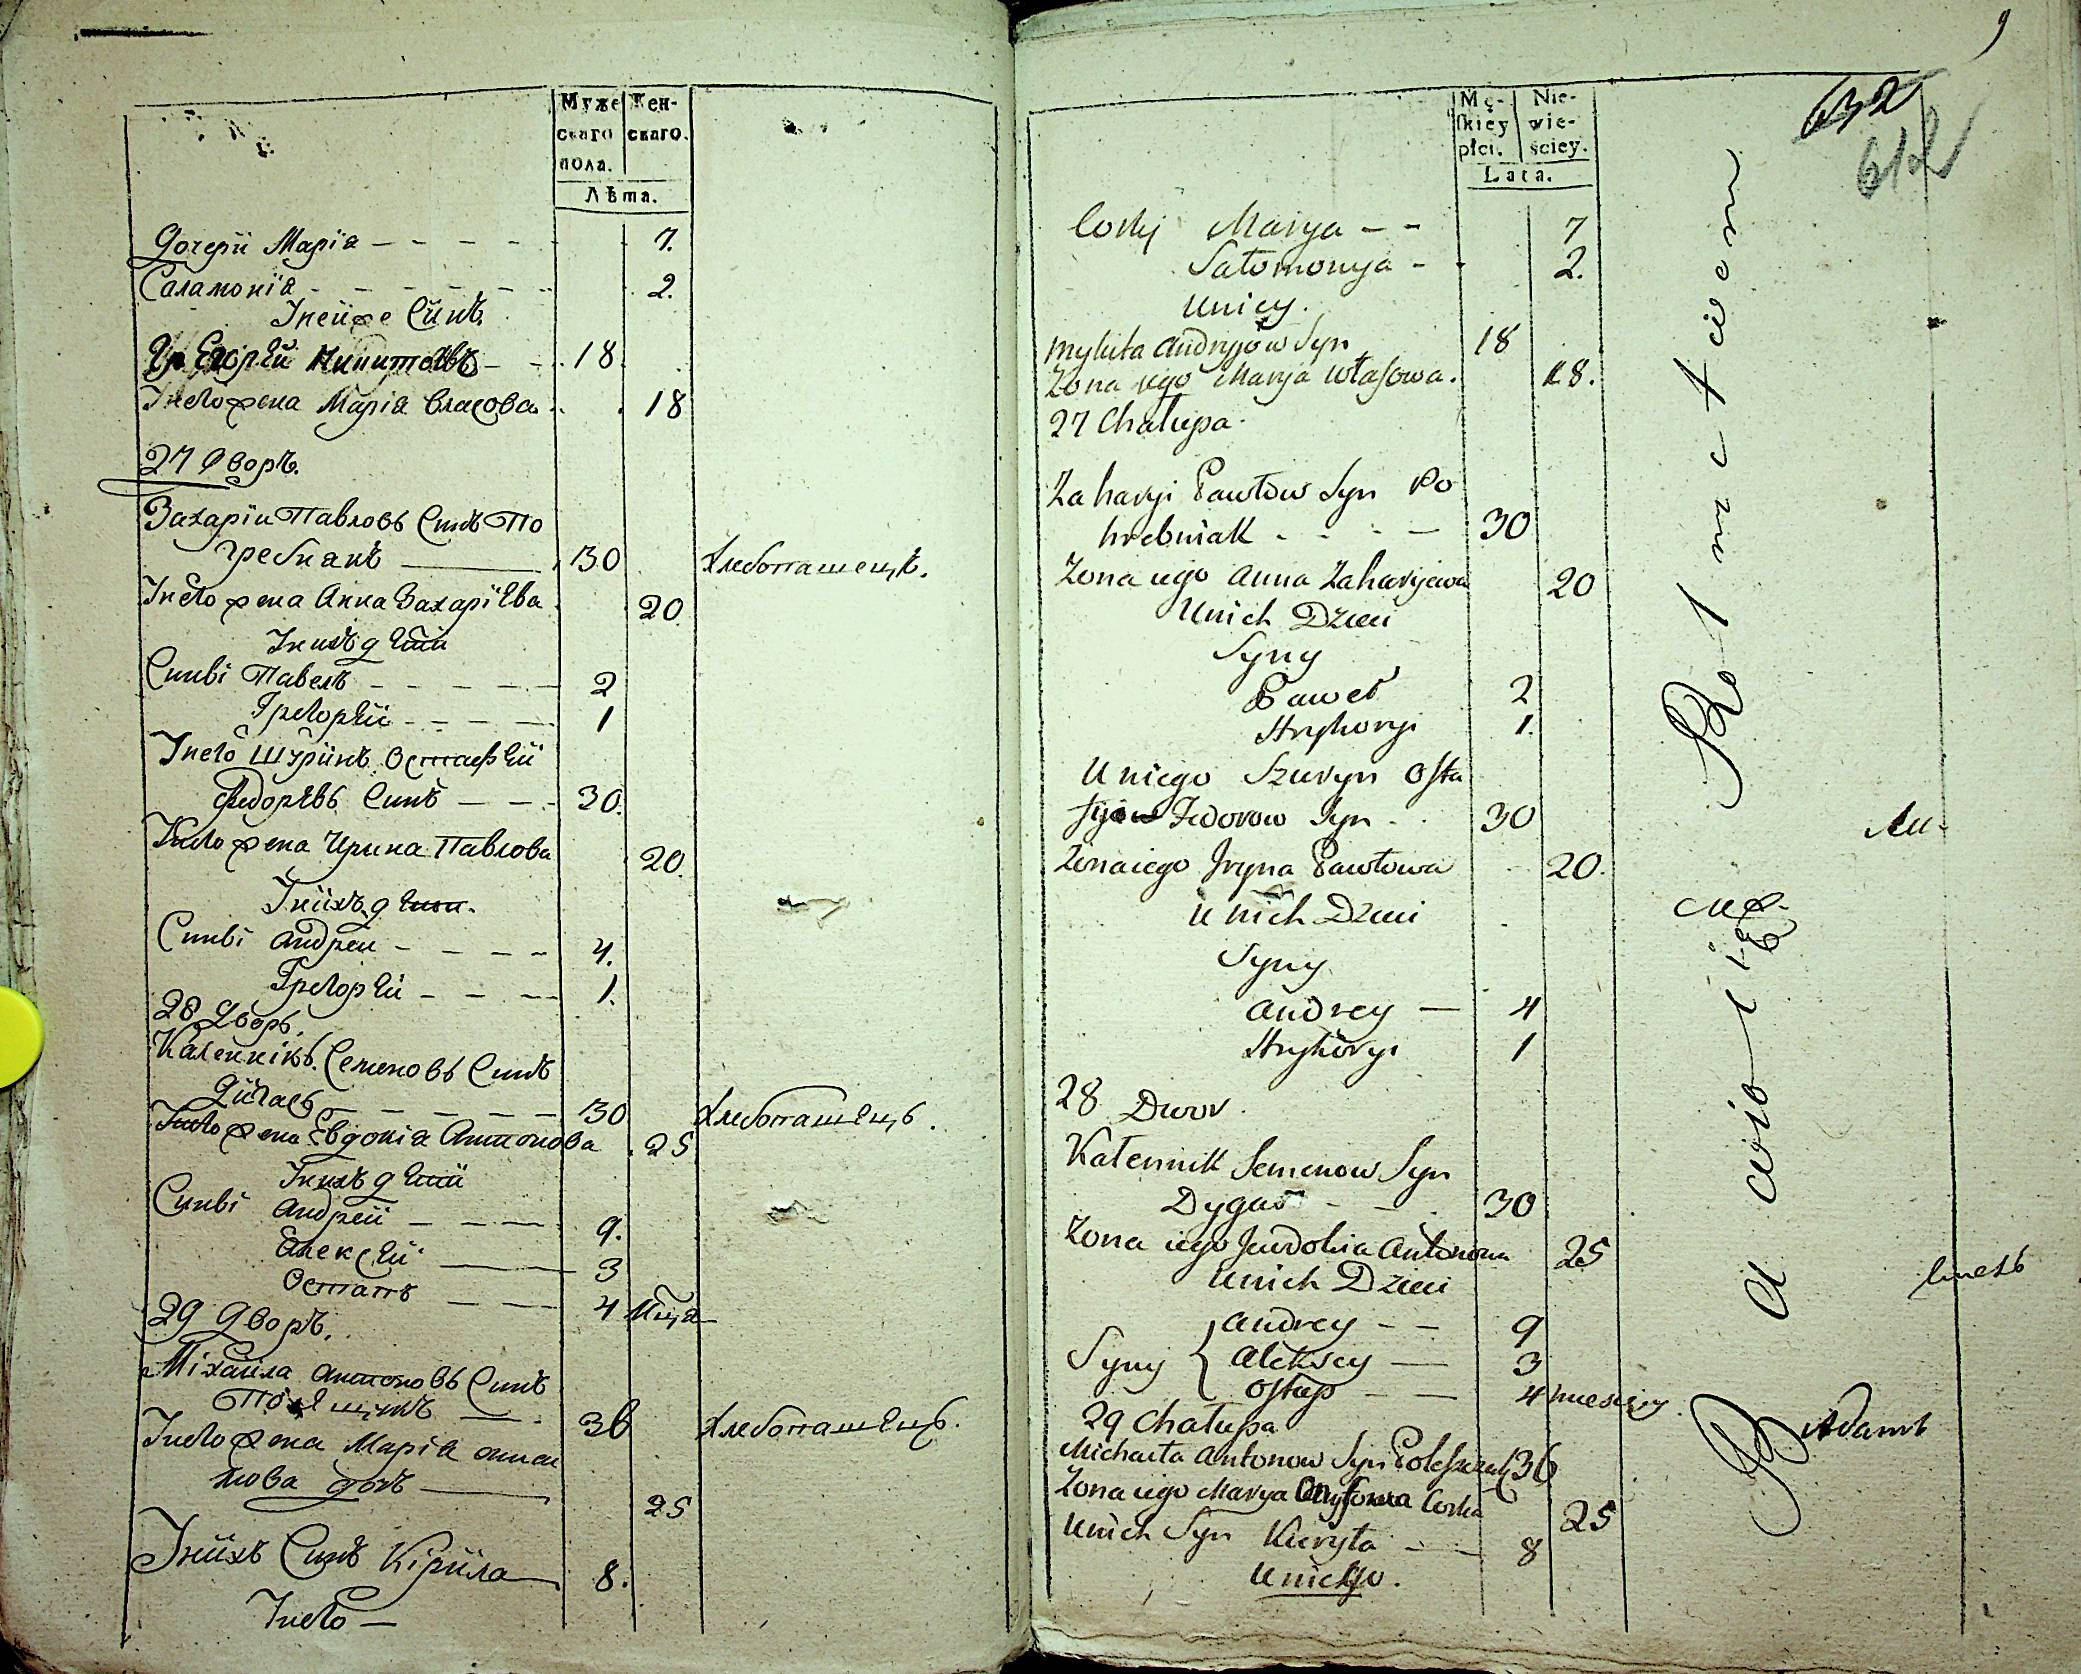 Муже
скаго
пола.
Жен-
скаго.
Лѣта.
Дочери Марія 7.
Саламонія 2.
Унейже Синъ
Никитовъ 18
Унего жена Марія Власова 18
27 Дворъ.
Захаріи Павловъ Синъ По
гребнякъ 30 хлебопашецъ.
Унего жена Анна Захаріева 20
Унихъ дети
Синві Павелъ 2
Грегорій 1
Унего шуринъ Остафей
Федоревъ Синъ 30.
Унего жена Ирина Павлова 20.
Унихъ дети.
Синві Андреи 4.
Грегорей 1.
28 Дворъ.
Каленнікъ Семеновъ Синъ
Дигасъ 30 хлебопашецъ.
Унего жена Евдокія Антонова 25
Унихъ дети
Синві Андрей 9.
Алексей 3
Остапъ 4 мца
29 Дворъ.
Міхайла Антоновъ Синъ
36 хлебопашецъ.
Унего жена Марія
25
Унихъ Синъ Кірила 8.
Унего
9
632
612
Mę-
skiey
płci.
Nie-
wie-
ściey.
Lata.
Corky Marya 7
Sałomonya 2.
Unicy.
Mykita Andryjow Syn 18
Zona iego Marya Własowa. 18.
27 Chałupa
Zaharyi Pawłow Syn Po
hrebniak 30
Zona iego Anna Zaharyiewa 20
Unich Dzieci
Syny
Paweł 2
Hryhoryi 1.
U niego Szuryn Osta
Fedorow Syn 30
Zona iego Iryna Pawłowa 20.
U nich Dzieci
Syny
Andrey 4
Hryhoryi 1
28 Dwor
Kałennik Semenow Syn
Dygas 30
Zona iego Jewdokia Antonowa 25
Unich Dzieci
Syny Andrey 9
Aleksey 3
Ostap 4 miesięcy
29 Chałupa
Michałta Antonow Syn Poleszczuk 36
Zona iego Marya Corka 25
Unich Syn Kieryła 8
Uniego.